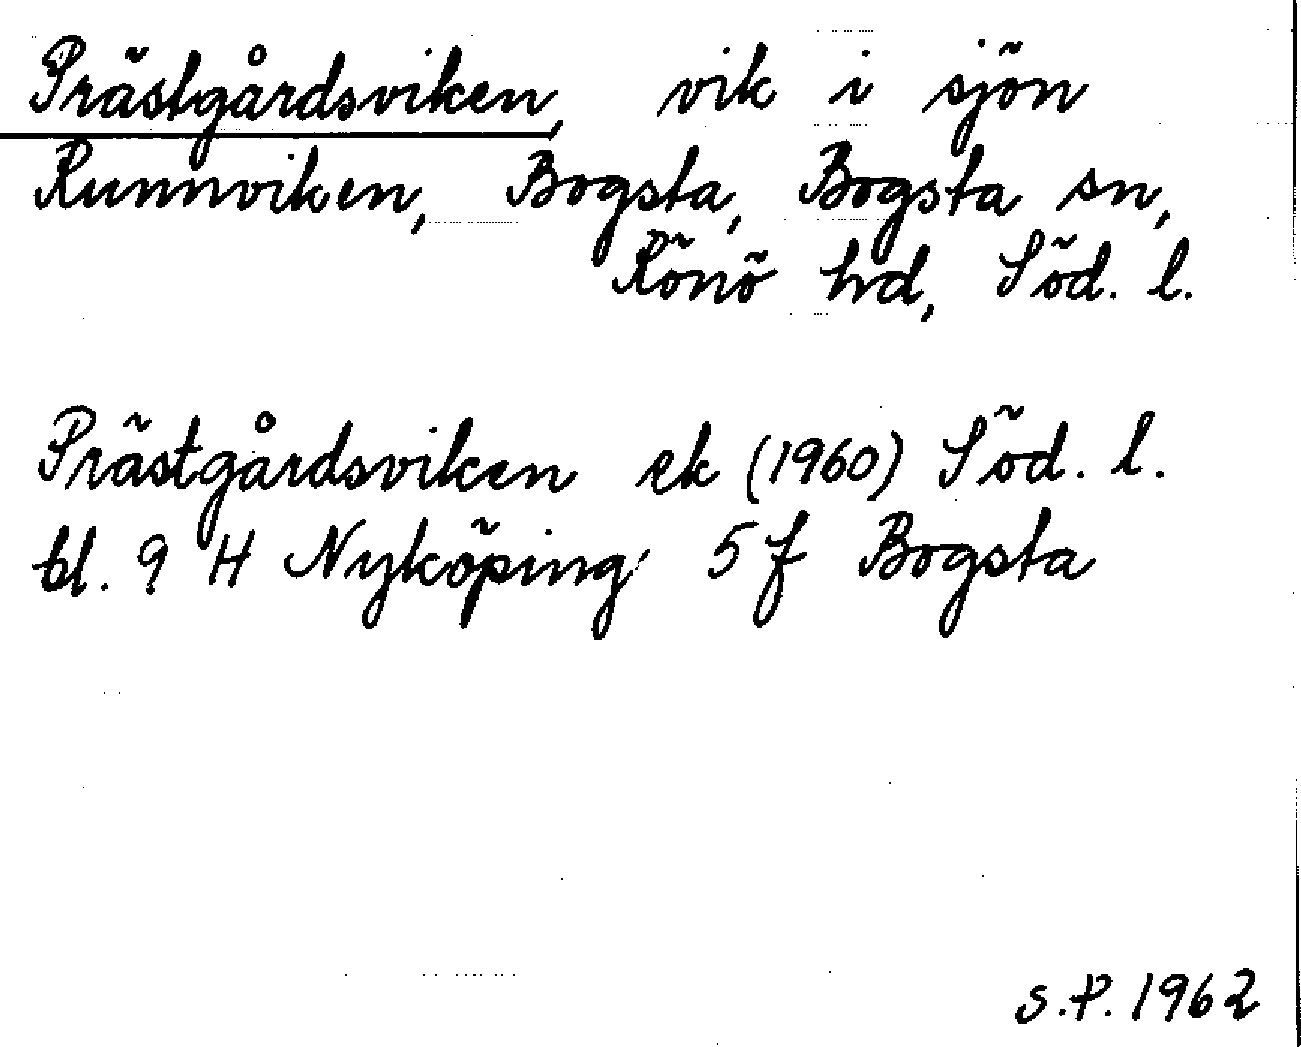 Prästgårdsviken, vik i sjön
Runnviken, Bogsta, Bogsta sn,
Rönö hd, Söd. l.
Prästgårdsviken ek (1960) Söd. l.
bl. 9 H Nyköping 5 f Bogsta
S.P. 1962